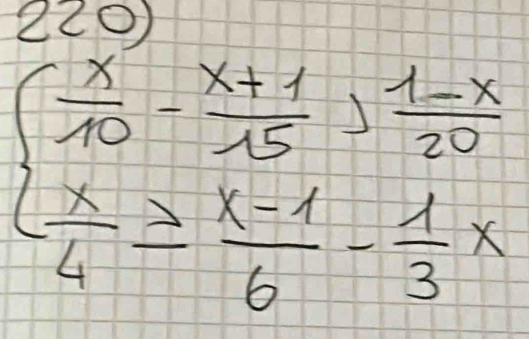 220)
x/10 - (x+1)/15 > (1-x)/20
x/4 ≥ (x-1)/6 - 1/3 x